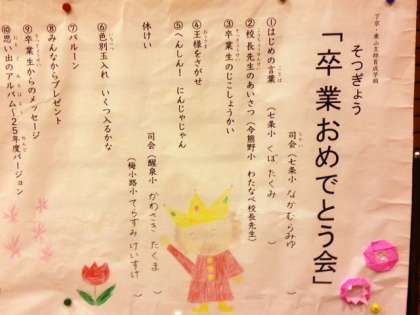 そつぎょう
「卒業おめでとう会」
司会(七条小 なかむらみゆ)
①はじめの言葉(七条小 くぼ たくみ)
②校長先生のあいさつ(今熊野小 わたなべ校長先生)
③卒業生のじこしょうかい
④王様をさがせ
⑤へんしん! にんじゃじゃん
休けい
司会(醍泉小 かわさき たくま)
⑥色別玉入れ いくつ入るかな(梅小路小 てらすみ けいすけ)
⑦バルーン
⑧みんなからプレゼント
⑨卒業生からのメッセージ
⑩思い出のアルバム〜25年度バージョン